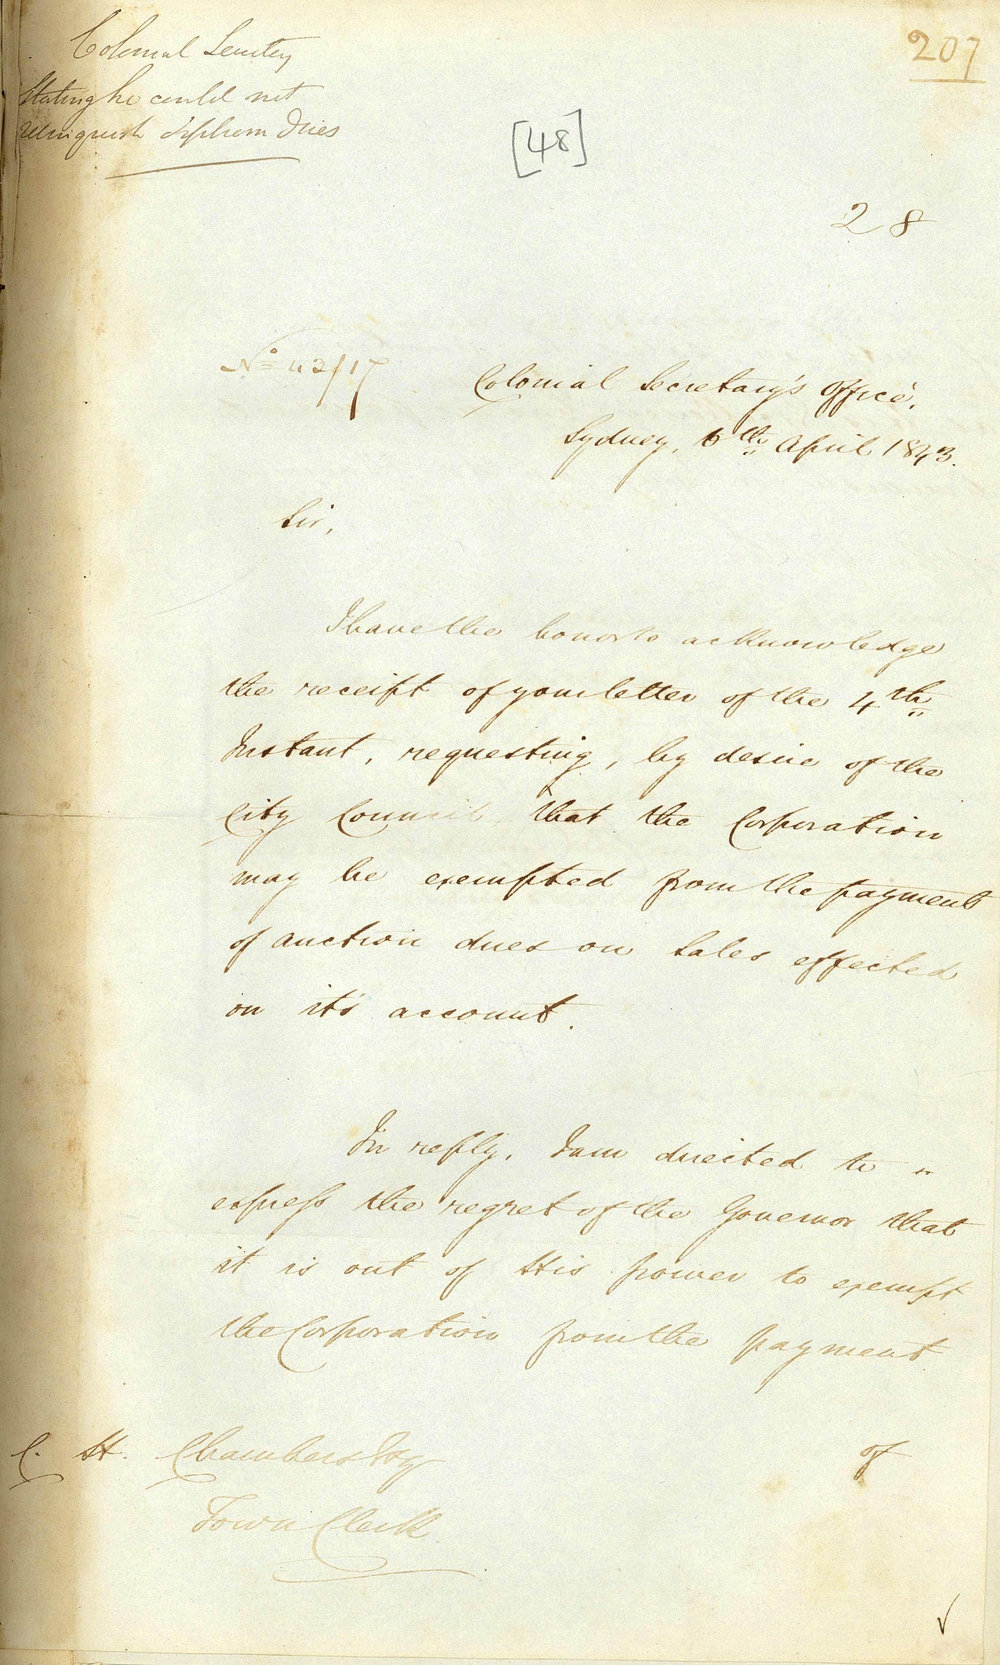 Colonial Secretary
Stating he could not
relinquish Orphan Dues
207
[48]
28
No 43/17
Colonial Secretary's Office,
Sydney, 6th April 1843.
Sir,
I have the honor to acknowledge
the receipt of your letter of the 4th
Instant, requesting, by desire of the
City Council, that the Corporation
may be exempted from the payment
of auction dues on sales effected
on it's account.
In reply, I am directed to "
express the regret of the Governor that
it is out of His power to exempt
the Corporation from the payment
of
C. H. Chambers Esq
Town Clerk